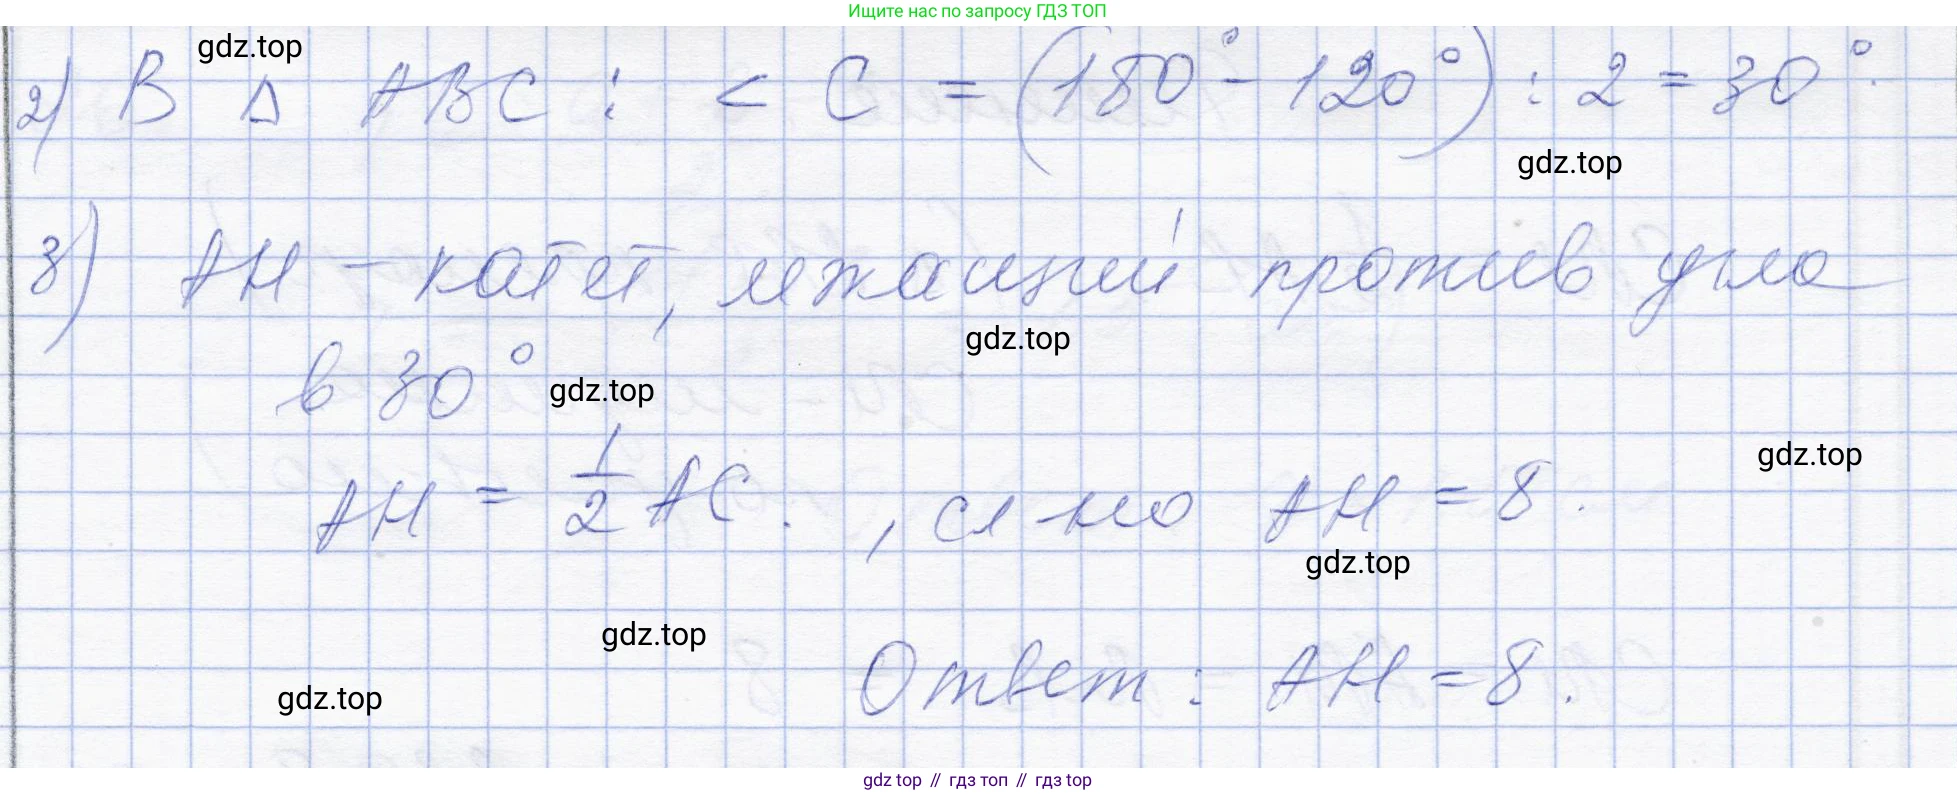 Ищите нас по запросу ГДЗ ТОП
gdz.top
2) В Δ ABC : < C = (180° - 120°) : 2 = 30°.
gdz.top
3) AH - катет, лежащий против угла
gdz.top
в 30°
gdz.top
gdz.top
AH = 1/2 AC. , сл-но AH = 8.
gdz.top
gdz.top
Ответ : AH = 8.
gdz.top
gdz top // гдз топ // гдз top